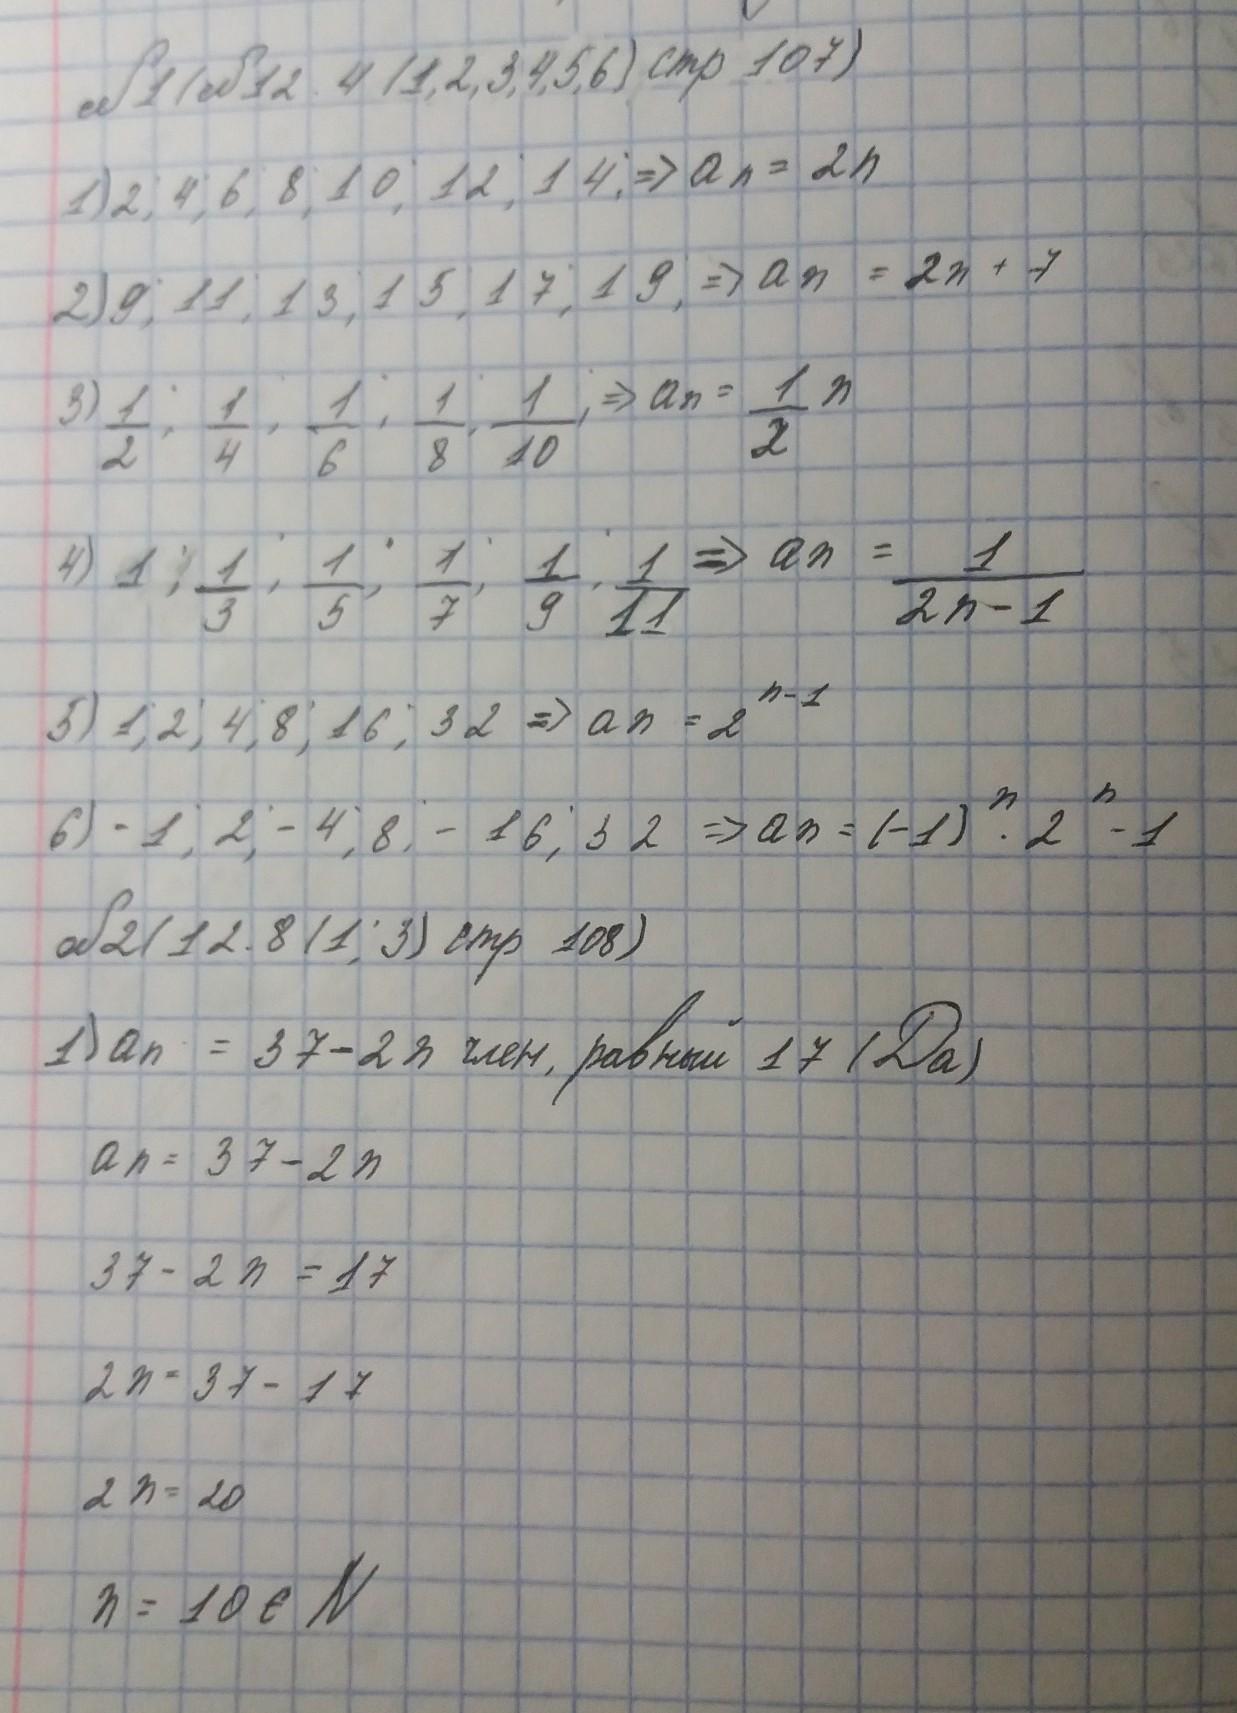 №1(№12.4(1,2,3,4,5,6) стр 107)
1) 2; 4; 6; 8; 10; 12; 14; => an = 2n
2) 9; 11; 13; 15; 17; 19; => an = 2n + 7
3) 1/2; 1/4; 1/6; 1/8; 1/10; => an = 1/2 n
4) 1; 1/3; 1/5; 1/7; 1/9; 1/11 => an = 1/(2n-1)
5) 1; 2; 4; 8; 16; 32 => an = 2^(n-1)
6) -1; 2; -4; 8; -16; 32 => an = (-1)^n · 2^n - 1
№2(12.8(1; 3) стр 108)
1) an = 37-2n член, равный 17 (Да)
an = 37-2n
37-2n = 17
2n = 37-17
2n = 20
n = 10 ∈ N